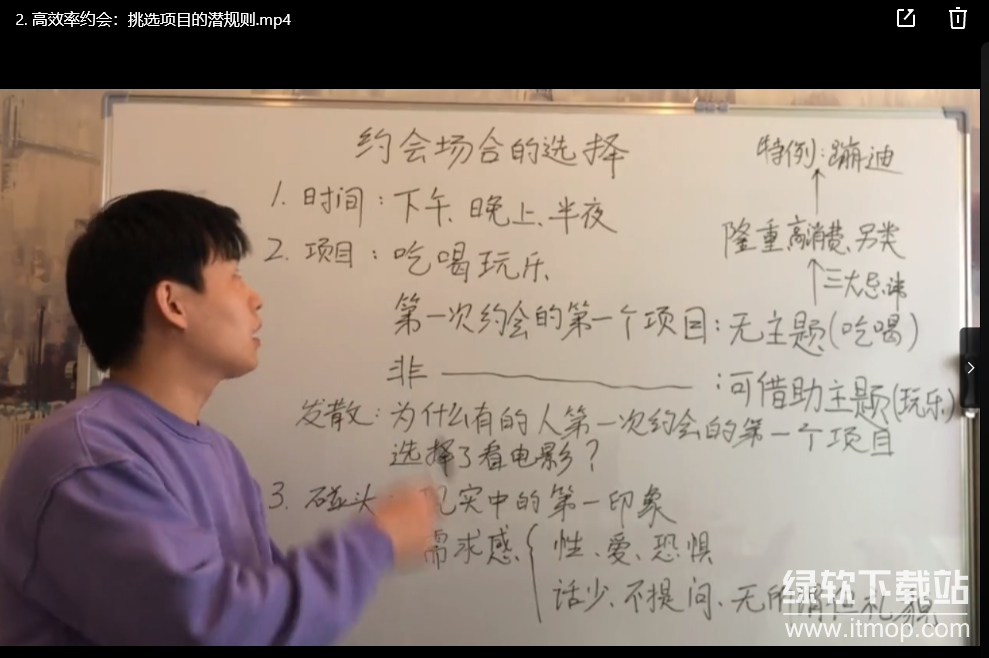 2. 高效率约会：挑选项目的潜规则.mp4
约会场合的选择
特例：蹦迪
1. 时间：下午、晚上、半夜
隆重高消费、另类
2. 项目：吃喝玩乐
三大忌讳
第一次约会的第一个项目：无主题(吃喝)
非 ：可借助主题(玩乐)
发散：为什么有的人第一次约会的第一个项目
选择了看电影？
3. 碰头 现实中的第一印象
需求感 性、爱、恐惧
话少、不提问、无所谓
绿软下载站
www.itmop.com